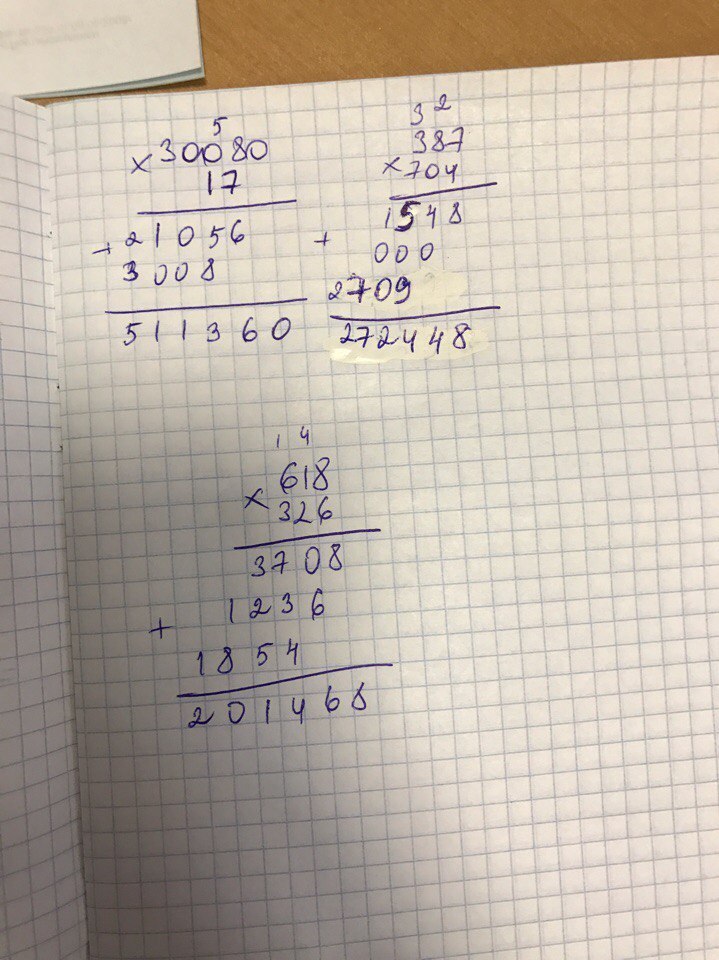 5
× 30080
17
+ 21056
3008
511360
3 2
387
× 704
1548
+ 000
2709
272448
1 4
618
× 326
3708
+ 1236
1854
201468